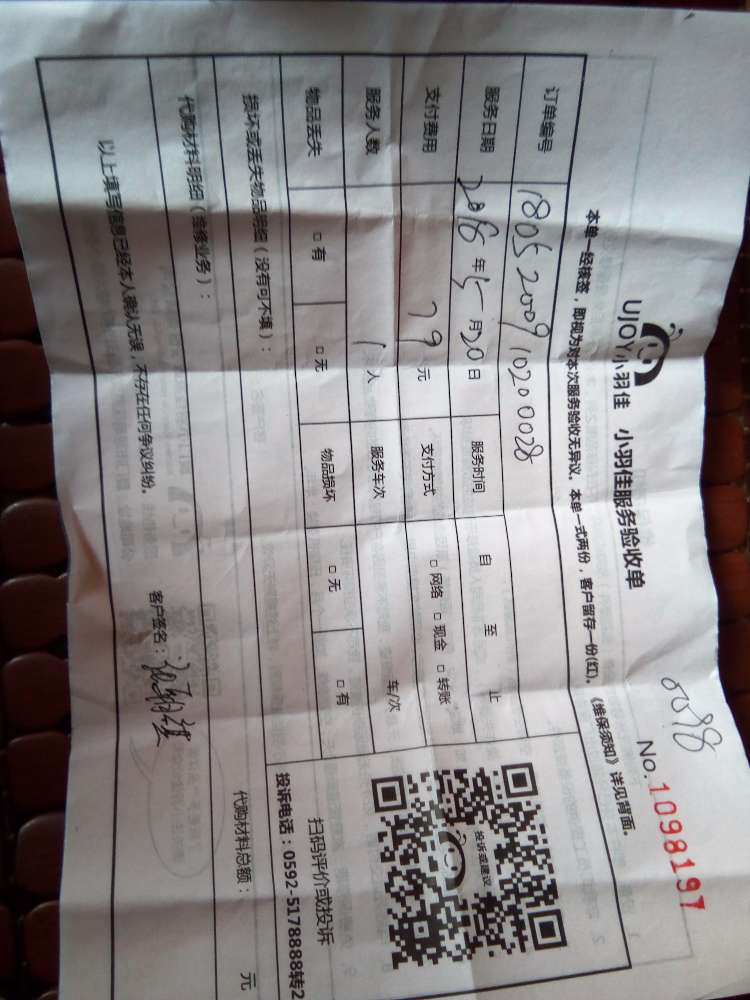 5098
No.1098197
UJOY小羽佳 小羽佳服务验收单
本单一经核签，即视为对本次服务验收无异议。本单一式两份，客户留存一份(红)。《维保须知》详见背面。
订单编号 1805200910200028
服务日期 2018年5月20日 服务时间 自 至 止
支付费用 79元 支付方式 □网络 □现金 □转账
服务人数 1人 服务车次 车/次
物品丢失 □有 □无 物品损坏 □无 □有
投诉或建议
扫码评价或投诉
投诉电话：0592-5178888转2
损坏或丢失物品明细（没有可不填）：
代购材料明细（维修业务）： 代购材料总额： 元
以上填写信息已经本人确认无误，不存在任何争议纠纷。
客户签名：